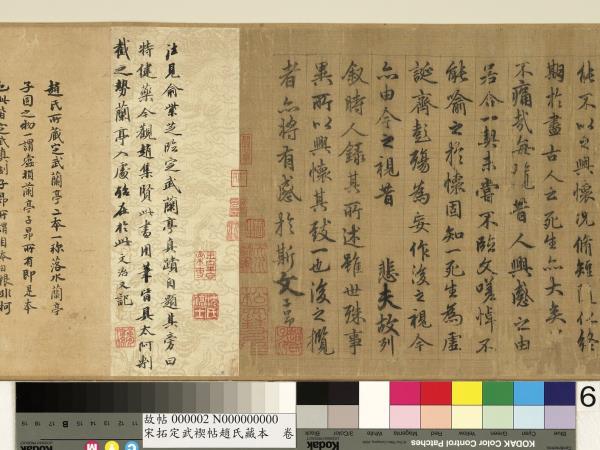 能不以之興懷況脩短隨化終
期於盡古人云死生亦大矣
不痛哉每攬昔人興感之由
若合一契未嘗不臨文嗟悼不
能喻之於懷固知一死生為虛
誕齊彭殤為妄作後之視今
亦由今之視昔 悲夫故列
敘時人錄其所述雖世殊事
異所以興懷其致一也後之攬
者亦將有感於斯文
法見俞紫芝臨定武蘭亭真蹟內題其旁曰
特健藥今觀趙集賢此書用筆皆具太阿剸
截之勢蘭亭八處俱在於此文治又記
趙氏所藏定武蘭亭二本一稱落水蘭亭
子固之物一謂虛損蘭亭子昂所有即是本
故帖 000002 N000000000
宋拓定武禊帖趙氏藏本 卷
KODAK Color Control Patches
Black
3/Color
White
Magenta
Red
Yellow
Green
Cyan
6
B
M